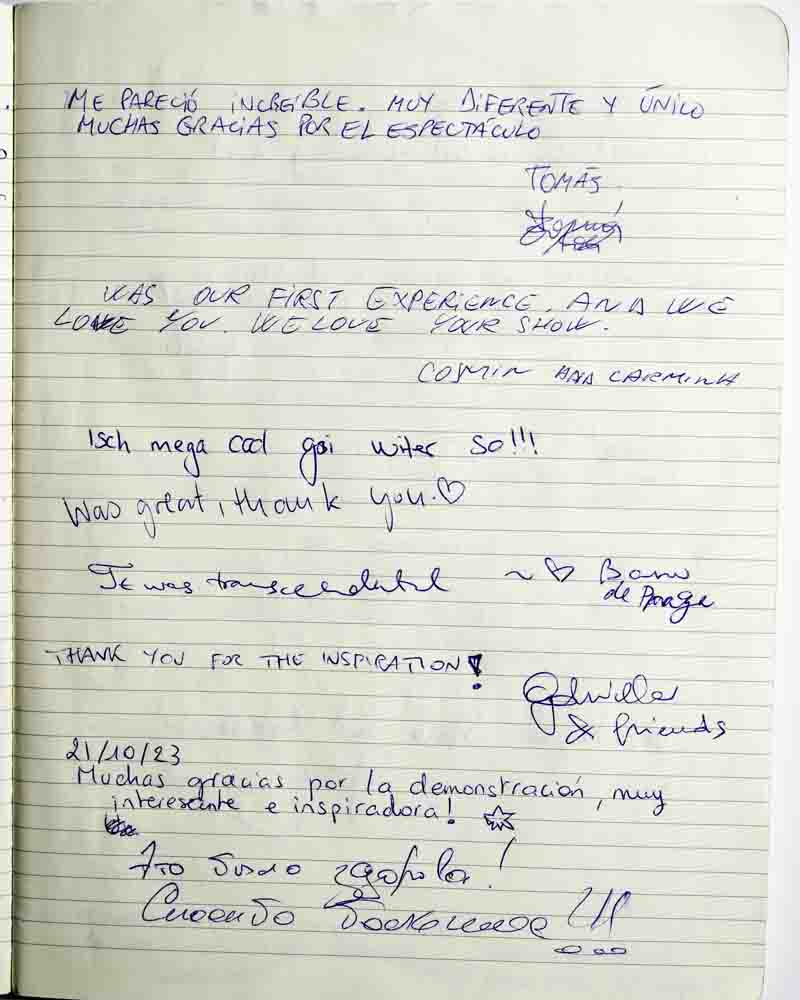 ME PARECIÓ INCREÍBLE. MUY DIFERENTE Y ÚNICO
MUCHAS GRACIAS POR EL ESPECTÁCULO
TOMÁS
WAS OUR FIRST EXPERIENCE. AND WE
LOVE YOU. WE LOVE YOUR SHOW.
COSMIN AND CARMINA
Isch mega cool gsi witer so!!!
Was great, thank you.♡
It was ~ ♡
de
THANK YOU FOR THE INSPIRATION!
& friends
21/10/23
Muchas gracias por la demonstración, muy
interesante e inspiradora!
Это было здорово!
Спасибо !!!